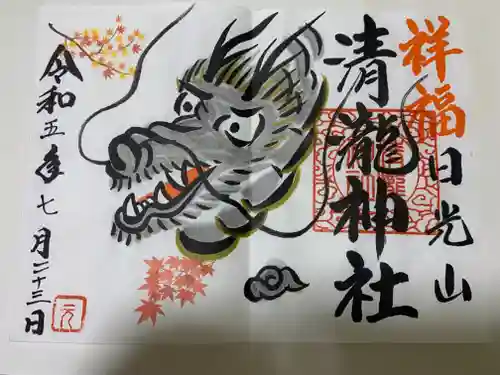 祥福
日光山
清瀧神社
令和五年七月二十三日
元